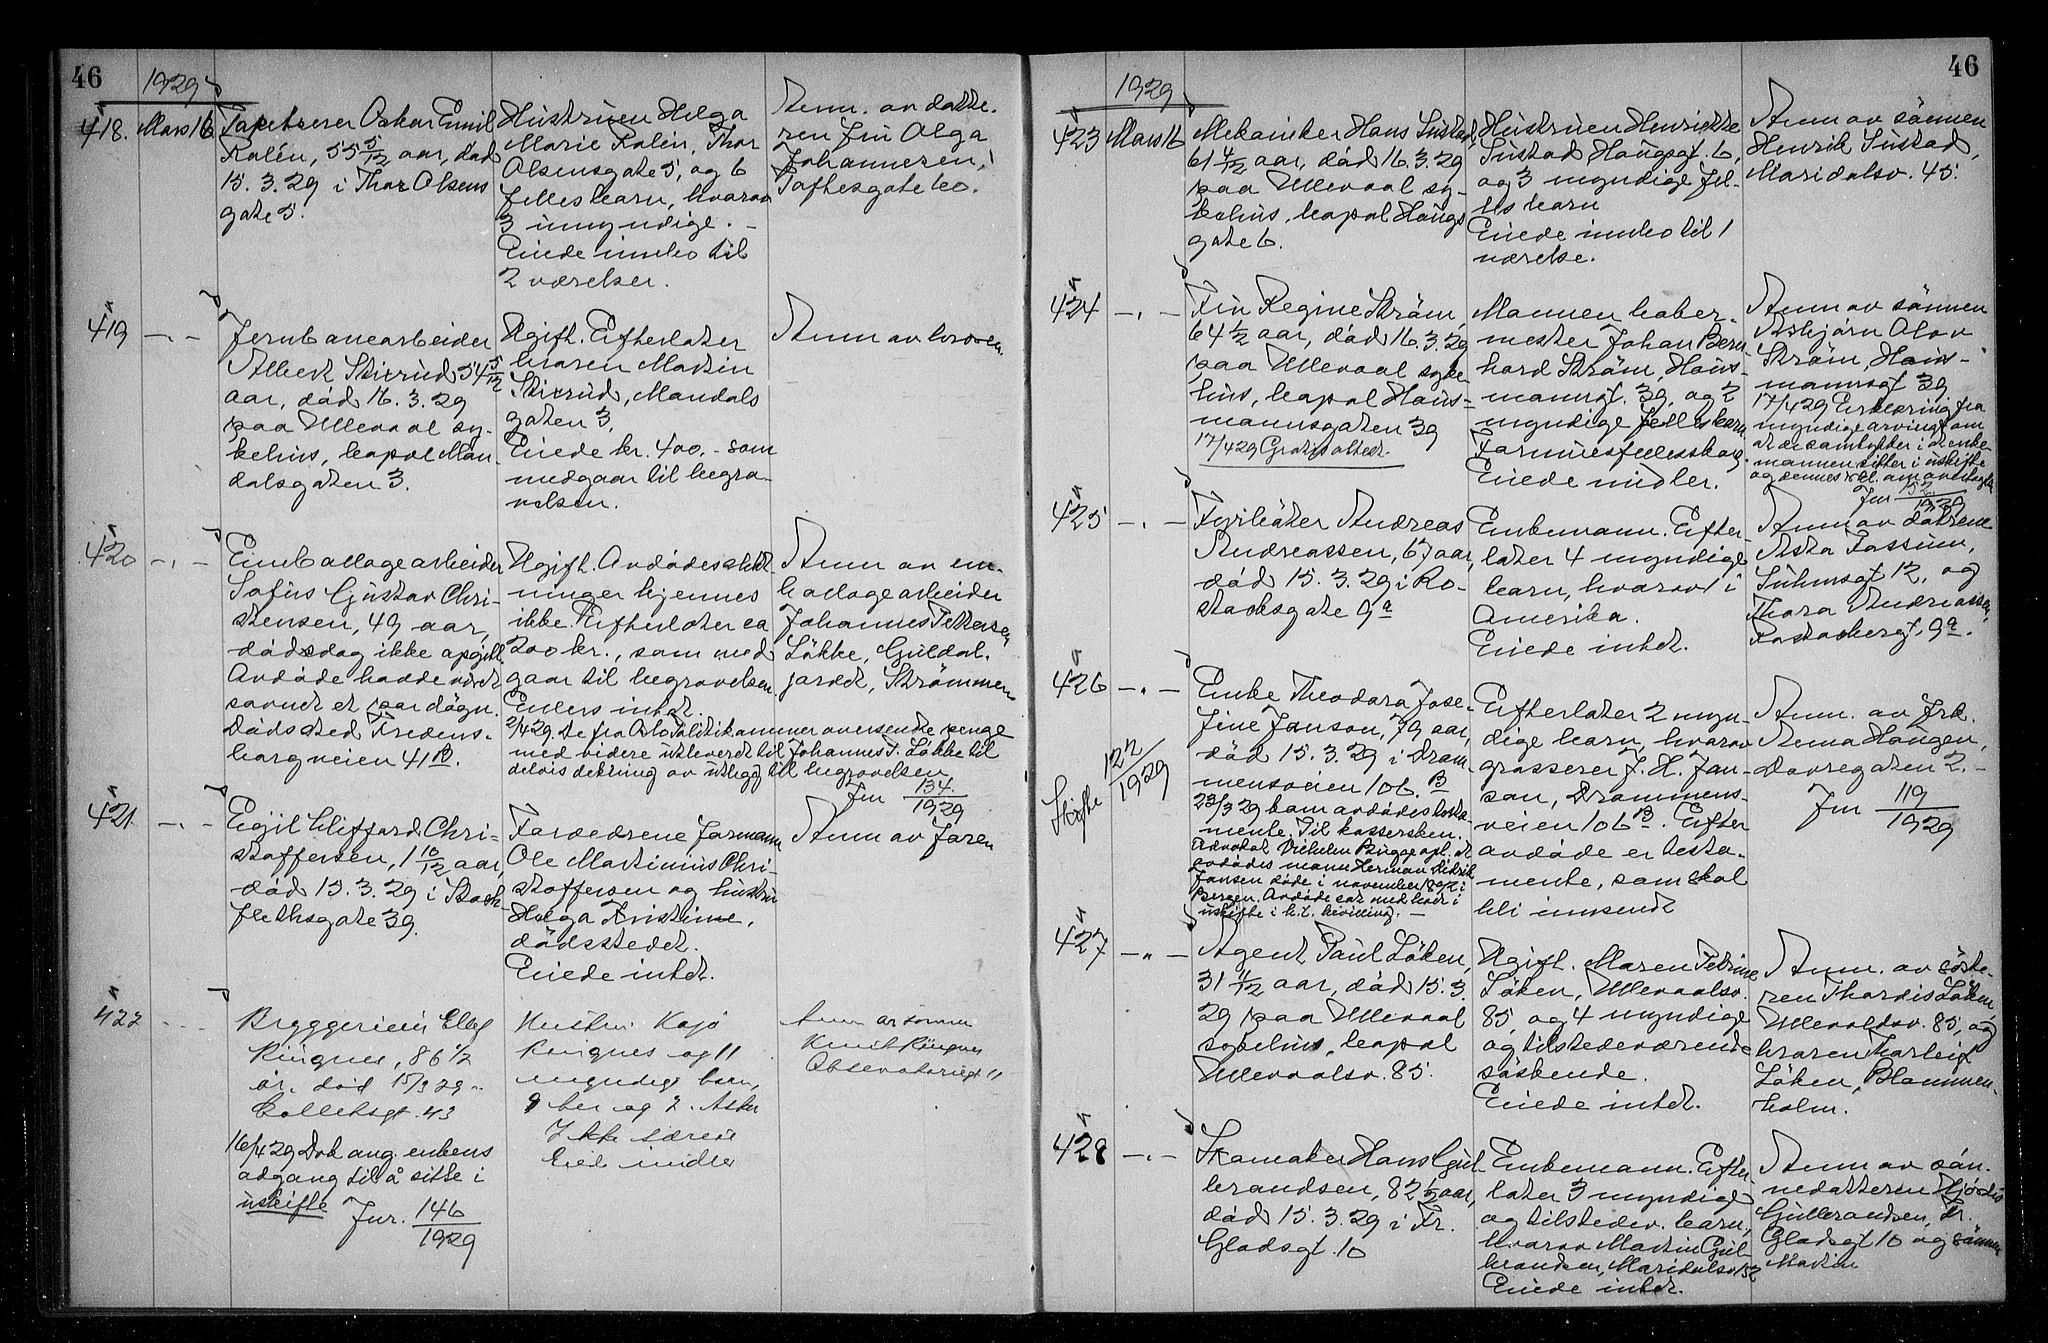 46
1929
418. Mars 16
Tapetserer Oskar Emil
Rolén, 55 5/12 aar, død
15.3.29 i Thor Olsens
gate 5.
Hustruen Helga
Marie Rolén, Thor
Olsensgate 5, og 6
felles barn, hvorav
3 umyndige. –
Eiede innbo til
2 værelser.
Anm. av datte-
ren fru Olga
Johannesen,
Toftesgate 60.
419 –.–
Jernbanearbeider
Albert Skirrud 54 5/12
aar, død 16.3.29
paa Ullevaal sy-
kehus, bopæl Man
dalsgaten 3.
Ugift. Efterlater
broren Martin
Skirrud, Mandals
gaten 3.
Eiede kr. 400.- som
medgaar til begra-
velsen.
Anm av broren.
420 –.–
Emballagearbeider
Sofus Gustav Chri-
stensen, 49 aar,
dødsdag ikke opgitt.
Avdøde hadde været
savnet et par døgn.
Dødssted Fredens-
borgveien 41 B.
Ugift. Avdødes slekt-
ninger kjennes
ikke. Efterlater ca
200 kr., som med
gaar til begravelsen.
Eiers intet.
2/4 29. De fra Oslo Politikammer oversendte penge
med videre utleveret til Johannes P. Løkke til
delvis dekning av utlegg til begravelsen.
Jnr 134/1929
Anm av em-
ballagearbeider
Johannes Pettersen
Løkke, Guldal.
jordet, Strømmen
421. –.–
Egil Cliffard Chri-
stoffersen, 1 10/12 aar,
død 15.3.29 i Stock
flethsgate 39.
Forældrene formann
Ole Martinius Chri-
stoffersen og hustru
Helga Kristine,
dødsstedet.
Eiede intet.
Anm av faren
422 –.–
Bryggerieier Ellef
Ringnes, 86 1/2
år, død 15/3 29
Collettsgt. 43
16/4 29 Dok ang. enkens
adgang til å sitte i
uskifte Jnr. 146/1929
Hustru Kaja
Ringnes og 11
myndige barn,
9 her og 2 i Asker
Ikke særeie
Eiet midler
Anm av sønnen
Knut Ringnes
Observatoriegt 11
46
1929
423 Mars 16
Mekaniker Hans Sustad,
61 4/12 aar, død 16.3.29
paa Ullevaal sy-
kehus, bopæl Haugs
gate 6.
Hustruen Henriette
Sustad Haugsgt. 6,
og 3 myndige fel-
les barn
Eiede innbo til 1
værelse.
Anm av sønnen
Henrik Sustad,
Maridalsv. 45.
424 –.–
Fru Regine Strøm,
64 1/2 aar, død 16.3.29
paa Ullevaal syke
hus, bopæl Haus-
mannsgaten 39
17/4 29 Gratis attest.
Mannen
mester Johan Bern
hard Strøm, Haus-
mannsgt. 39, og 2
myndige fellesbarn
Formuesfellesskap.
Eiede midler.
Anm av sønnen
Asbjørn Olav
Strøm, Haus-
mannsgt 39
17/4 29 Erklæring fra
myndige arvinger om
at de samtykker i at enke
mannen sitter i uskifte
og dennes erkl. om overtagelse
Jnr 152/1929
425 –.–
Fyrbøter Andreas
Andreassen, 67 aar,
død 15.3.29 i Ro-
stocksgate 9a
Enkemann. Efter-
later 4 myndige
barn, hvorav 1 i
Amerika.
Eiede intet.
Anm av døtrene
Asta Fossum,
Suhmsgt 12, og
Thora Andreassen,
9a.
426 –.–
Skifte 122/1929
Enke Theodora Jose-
fine Janson, 79 aar,
død 15.3.29 i Dram-
mensveien 106. B
23/3 29 kom avdødes testa-
mente. Til kassersken.
Advokat Vilhelm Bugge opl. at
avdødes mann Herman Didrik
Jansen døde i november 1892 i
Bergen. Avdøde sat med boet i
uskifte i h.t. bevilling. –
Efterlater 2 myn-
dige barn, hvorav
grosserer J. H. Jan-
son, Drammens-
veien 106 B. Efter
avdøde er testa-
mente, som skal
bli innsendt
Anm. av frk.
Anna Haugen,
Dovregaten 2. –
Jnr 119/1929
427 –„–
Agent Paul Løken,
31 11/12 aar, død 15.3.
29 paa Ullevaal
sykehus, bopæl
Ullevaalsv. 85.
Ugift. Maren Petrine
Løken, Ullevaalsv.
85, og 4 myndige
og tilstedeværende
søskende.
Eiede intet.
Anm. av søste-
ren Thordis Løken,
Ullevaalsv. 85, og
broren Thorleif
Løken, Blommen-
holm.
428 –.–
Skomaker Hans Gul-
brandsen, 82 1/2 aar,
død 15.3.29 i Fr.
Gladsgt. 10
Enkemann. Efter-
later 3 myndige
og tilstedev. barn,
hvorav Martin Gul-
brandsen, Maridalsv. 152
Eiede intet.
Anm av søn-
nedatteren Hjørdis
Gulbrandsen, Fr.
Gladsgt 10 og sønnen
Martin